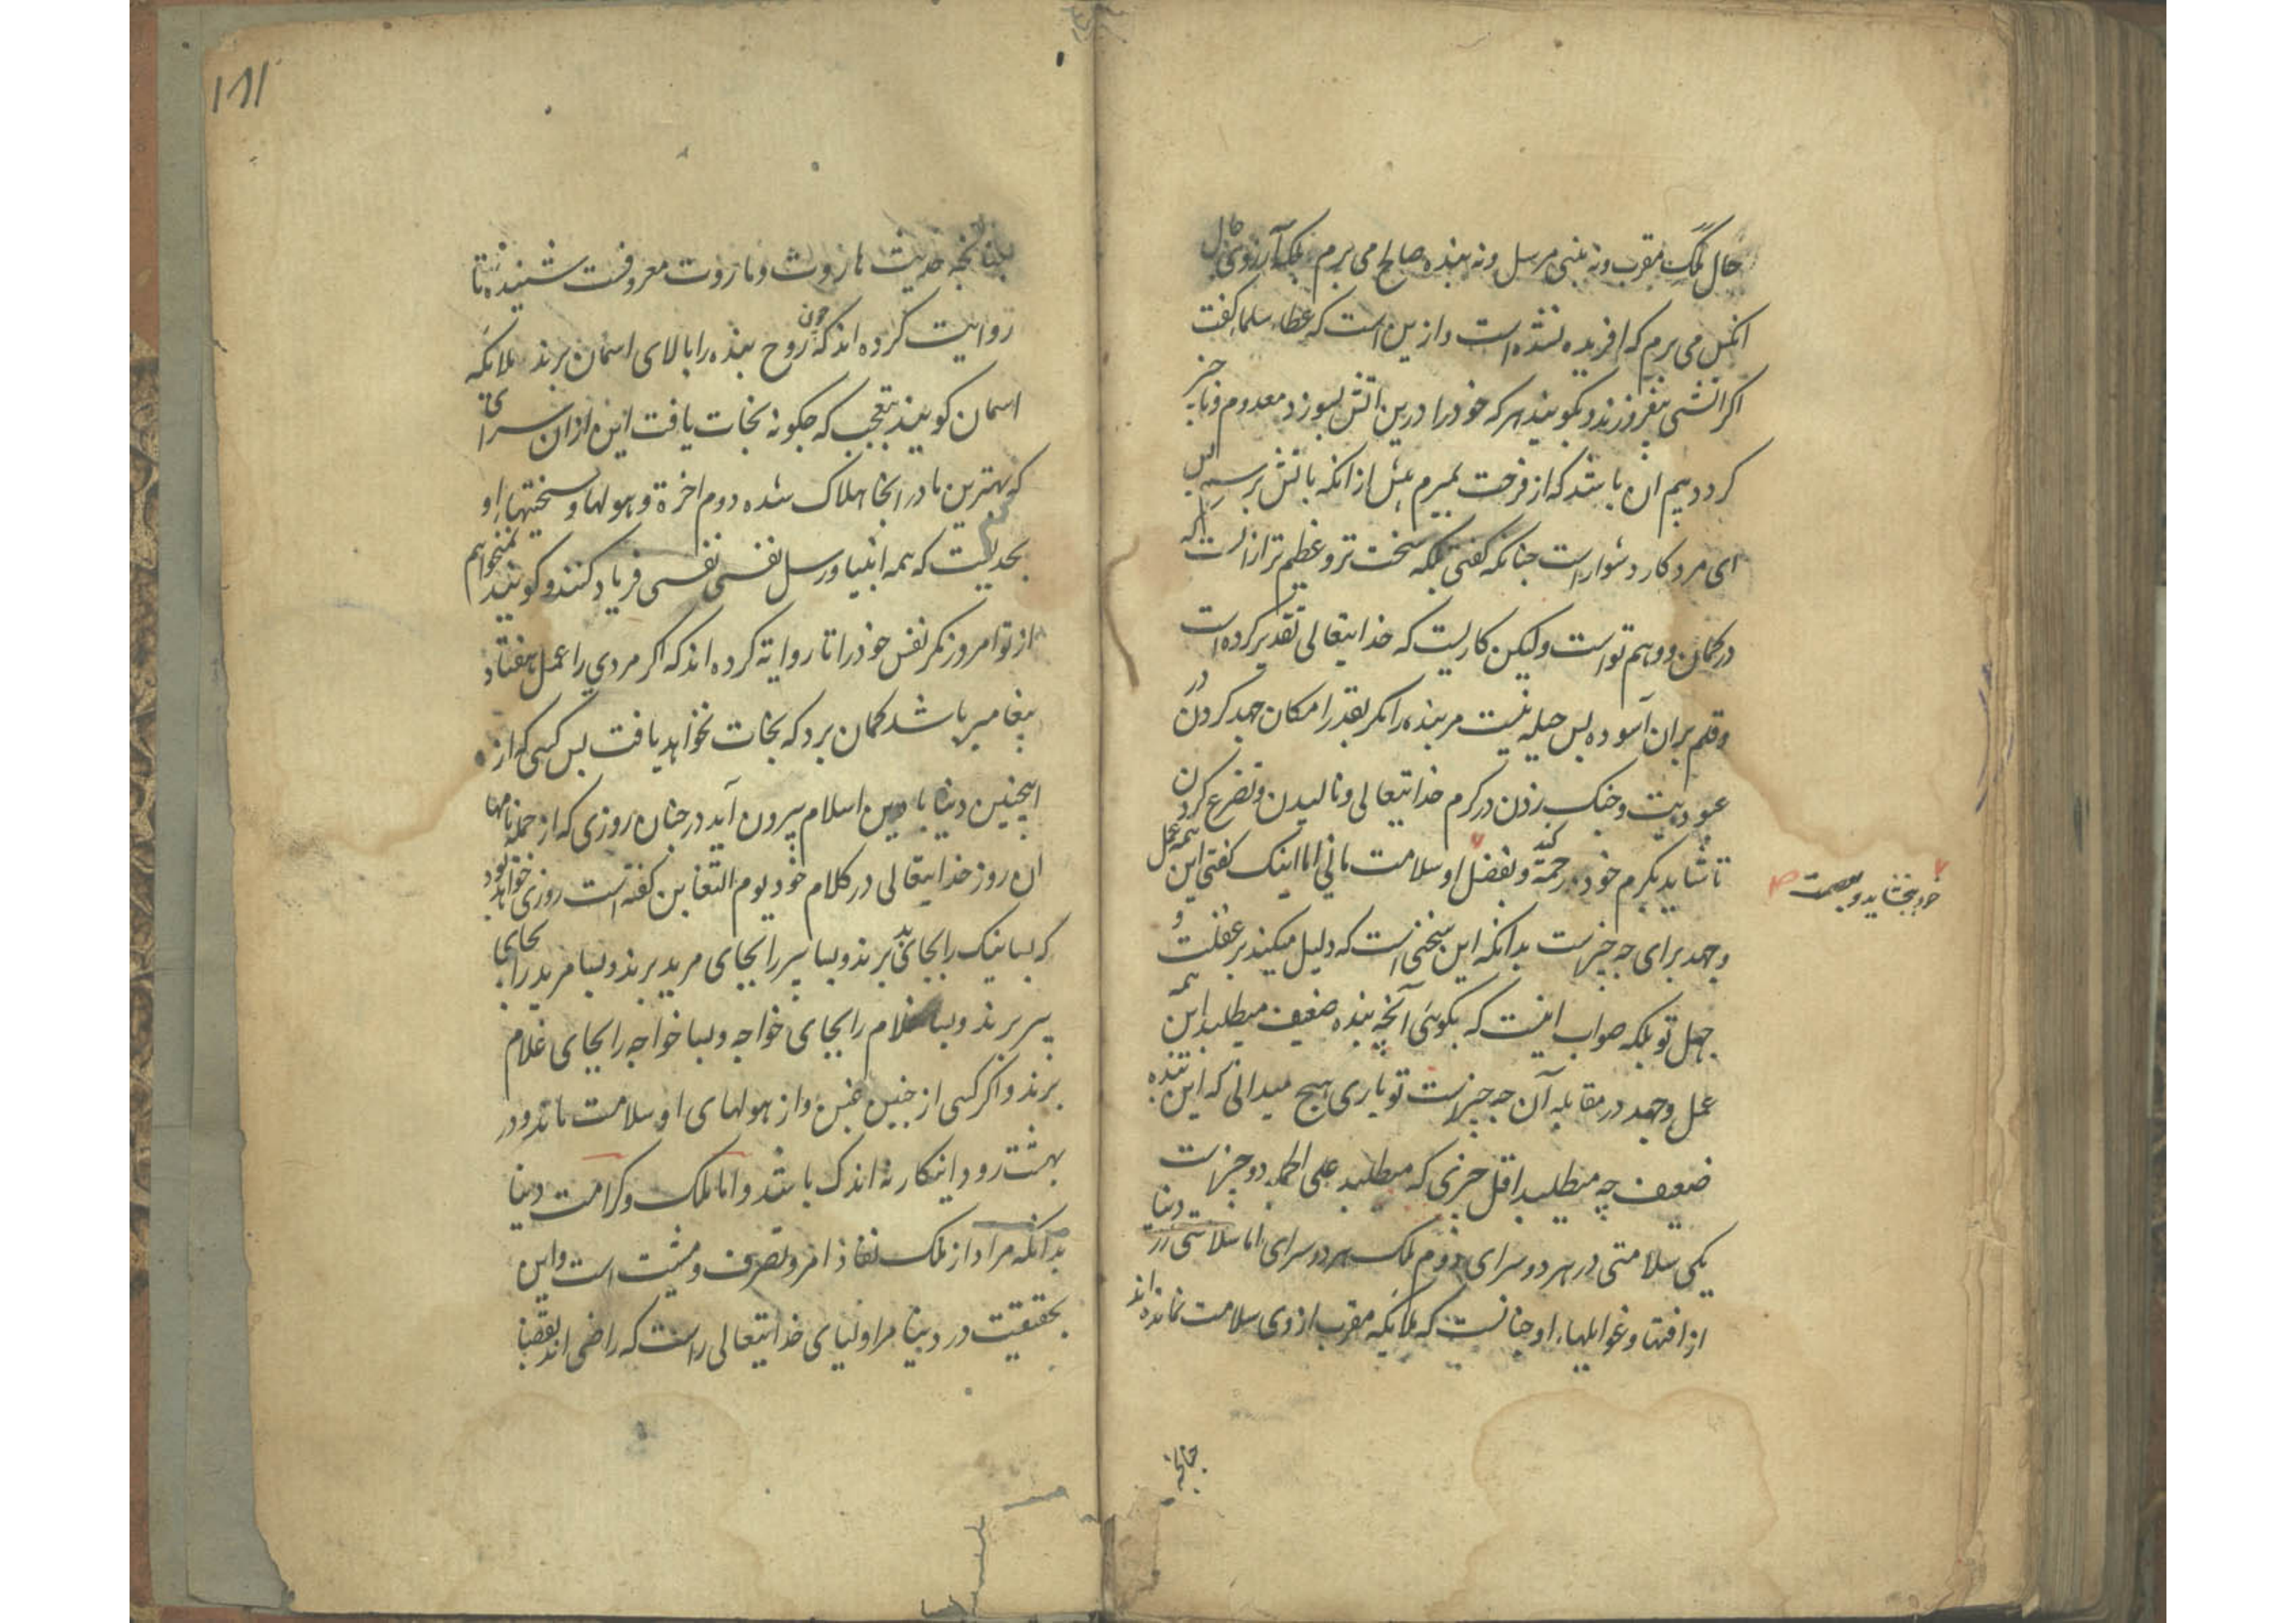 حال ملک مقرب و نه نبی مرسل و نه بنده صالح می برم بلکه آرزوی حال
انکس می برم که افریده نشده است و ازین است که عطاء سلما کفت
اکر اتشی بیفروزند و بکویند هر که خود را درین اتش بسوزد معدوم و ناجیز
کردد بیم ان باشد که از فرحت بمیرم بیش از انکه باتش برسم بس
ای مرد کار دشوار است جنانکه کفتی بلکه سخت تر و عظیم تر از انست که
در کمان و وهم تو است ولیکن کاریست که خدایتعالی تقدیر کرده است
و قلم بران آسوده بس حیله نیست مر بنده را مکر بقدر امکان جهد کردن در
عبودیت و جنک زدن در کرم خدایتعالی و نالیدن و تضرع کردن
تا شاید بکرم خود رحمة کند و بفضل او سلامت مانی اما اینک کفتی این همه عمل
خود ببخشاید و
و جهد برای جه جیزست بدانکه این سخنی است که دلیل میکند بر غفلت و
جهل تو بلکه صواب اینست که بکوئی آنچه بنده ضعیف میطلبد این همه
عمل و جهد در مقابله آن جه جیز است تو باری هیج میدانی که این بنده
ضعیف چه میطلبد اقل جیزی که میطلبد علی الجمله دو جیز است
یکی سلامتی در هر دو سرای دوم ملک هر دو سرای اما سلامتی در دنیا
از افتها و غوایلهاء او جنانست که ملایکه مقرب از وی سلامت نمانده اند
جنانجه
۱۸۱
جنانجه حدیث هاروت و ماروت معروفست شنیدهٔ تا
روایت کرده اند که جون روح بنده را بالای اسمان برند ملائکه
اسمان کویند بتعجب که جکونه نجات یافت این ازان سرای
که بهترین ما در انجا هلاک شده دوم اخرة و هولها و سختیهاء او
بحدیست که همه انبیا و رسل نفسی نفسی فریاد کنند و کویند نمیخواهم
از تو امروز مکر نفس خود را تا روایة کرده اند که اکر مردی را عمل هفتاد
پیغامبر باشد کمان برد که نجات نخواهد یافت بس کسی که از
اینچنین دنیا با دین اسلام بیرون آید در جنان روزی که از جمله نامها
ان روز خدایتعالی در کلام خود یوم التغابن کفته است روزی خواهد بود
که بسا نیک را بجای بد برند و بسا پیر را بجای مرید برند و بسا مرید را بجای
پیر برند و بسا غلام را بجای خواجه و بسا خواجه را بجای غلام
برند و اکر کسی از جنین غبن و از هولهای او سلامت ماند و در
بهشت رود اینکار نه اندک باشد و اما ملک و کرامت دنیا
بدانکه مراد از ملک نفاذ امر و تصرف و مشیت است و این
بحقیقیت در دنیا مر اولیای خدایتعالی راست که راضی اند بقضا